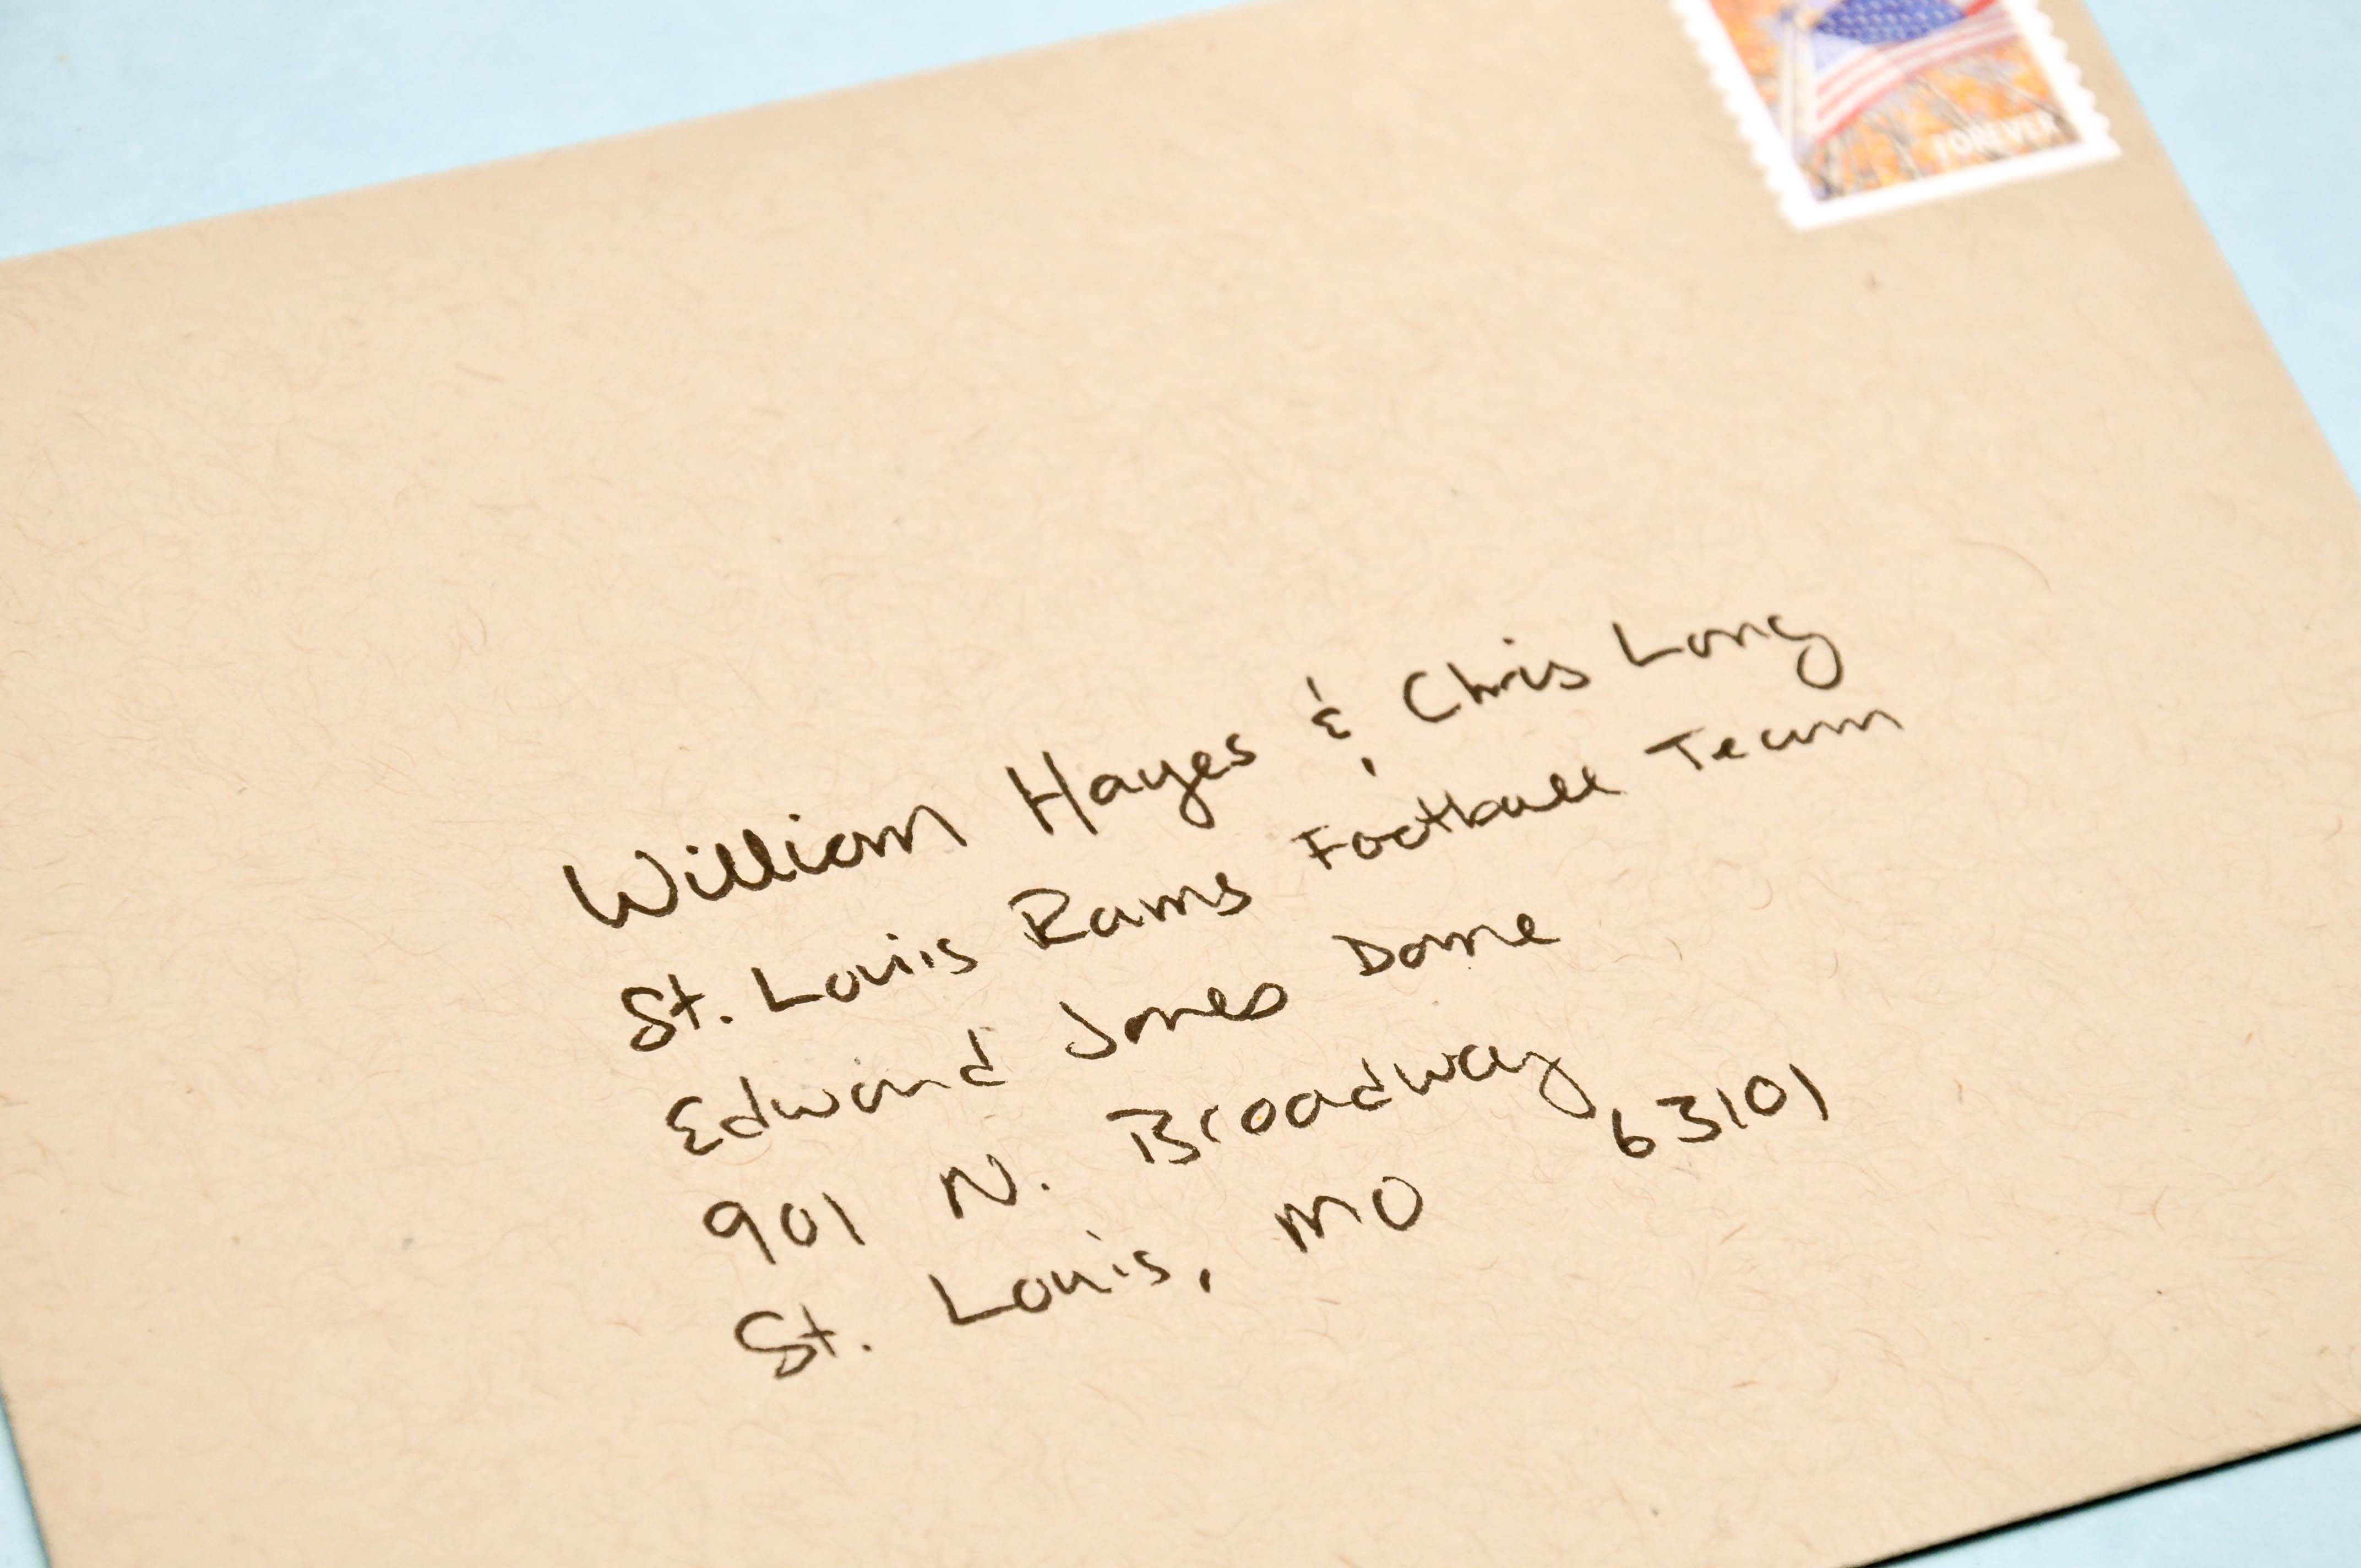 FOREVER
William Hayes & Chris Long
St. Louis Rams Football Team
Edward Jones Dome
901 N. Broadway
St. Louis, MO 63101